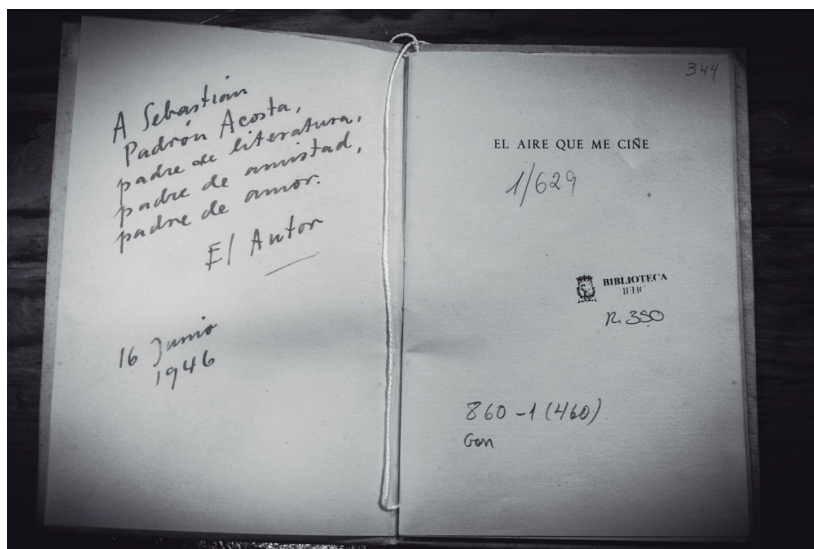 A Sebastián
Padrón Acosta,
padre de literatura,
padre de amistad,
padre de amor.
El Autor
16 Junio
1946
344
EL AIRE QUE ME CIÑE
1/629
BIBLIOTECA
IEHC
R. 350
860-1(460)
Gon